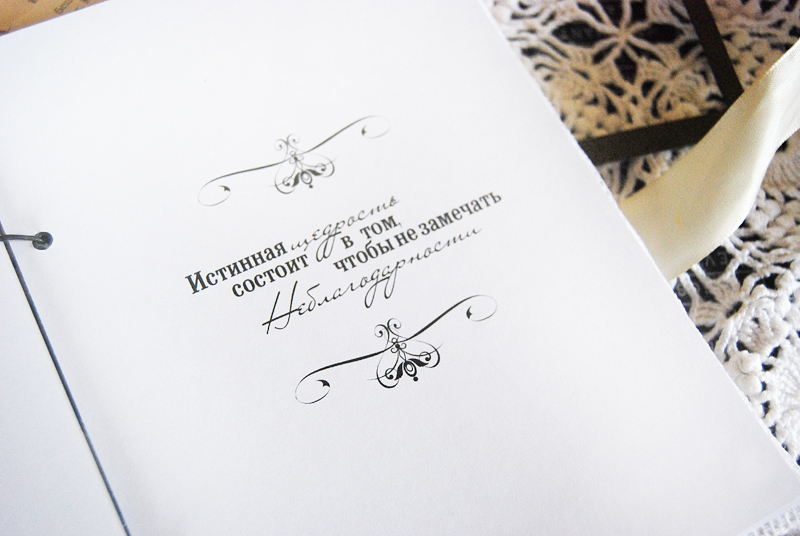 Истинная щедрость
состоит в том,
чтобы не замечать
Неблагодарности